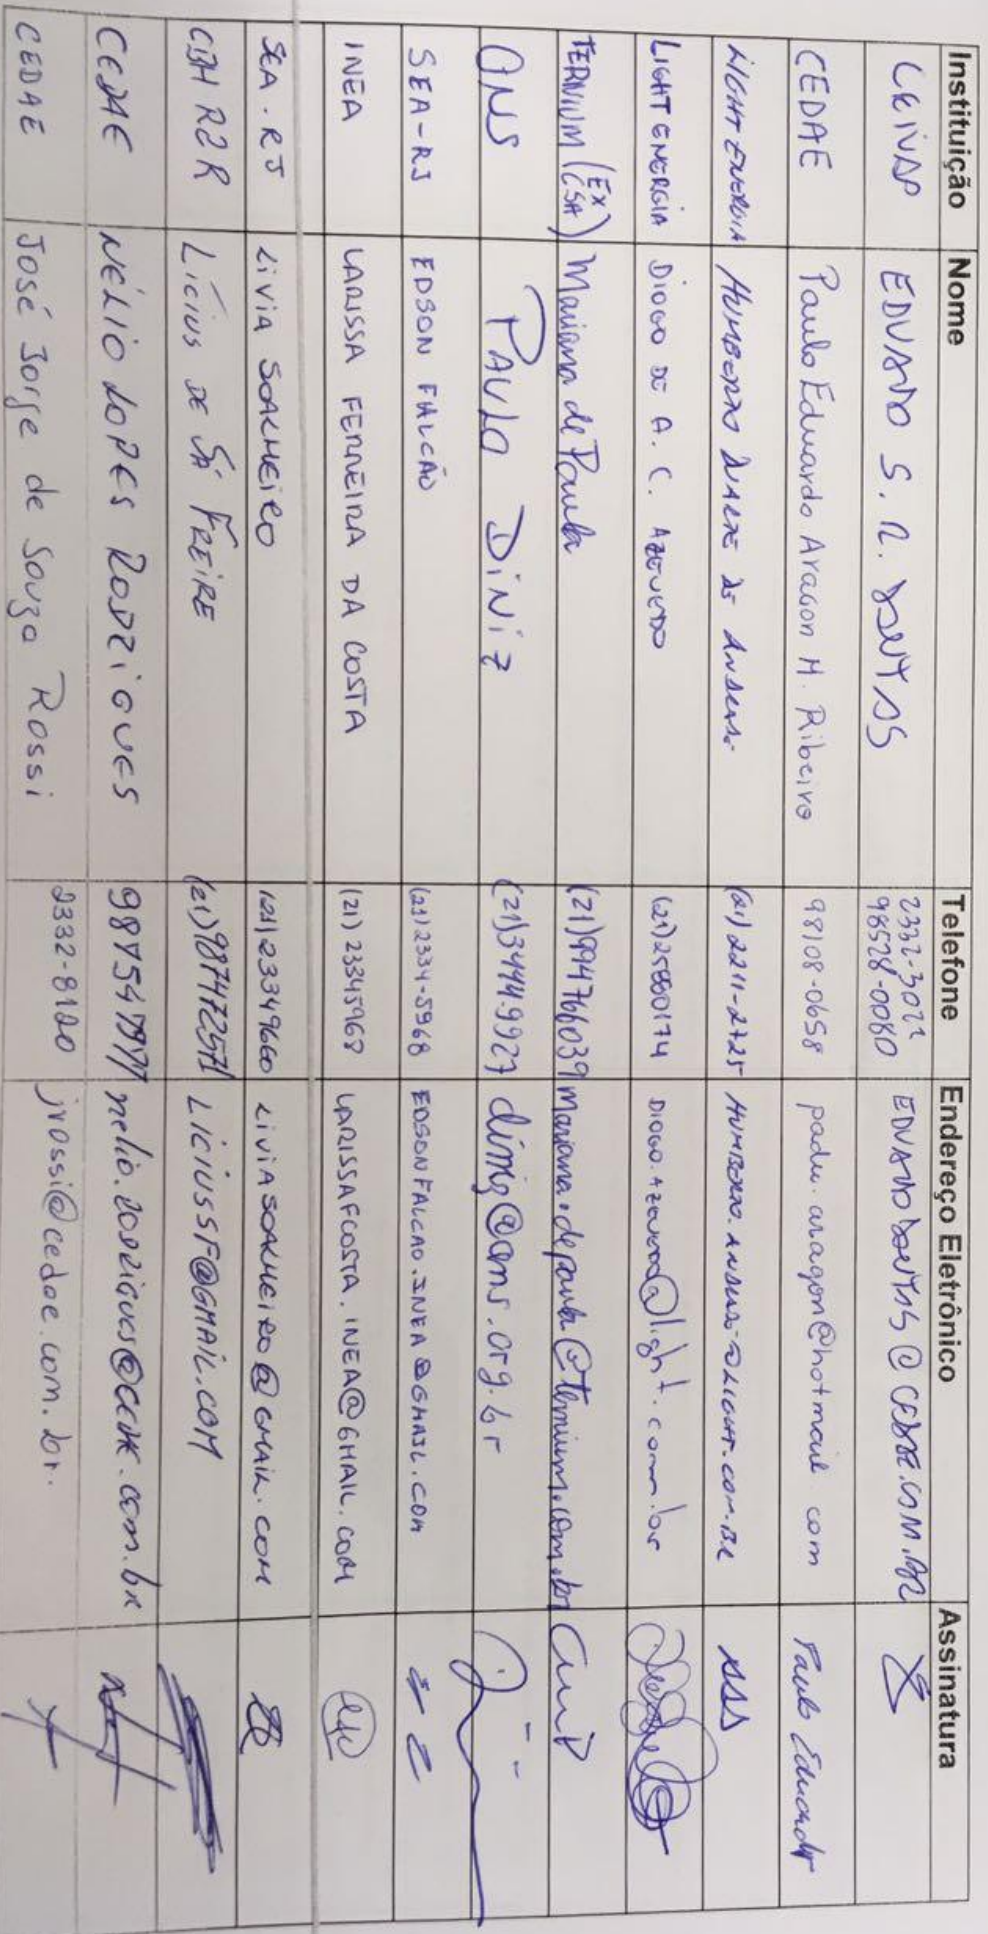 Instituição Nome Telefone Endereço Eletrônico Assinatura
EDUARDO S. R. DANTAS 2332-3022
98528-0080
CEDAE Paulo Eduardo Aragon M. Ribeiro 98108-0658 padu.aragon@hotmail.com Paulo Eduardo
LIGHT ENERGIA HUMBERTO DUARTE DE ANDRADE (21) 2211-2725
LIGHT ENERGIA DIOGO DE A. C. AZEVEDO (21)25550174 DIOGO.AZEVEDO@light.com.br
TERNIUM (EX CSA) Mariana de Paula (21)994766039 mariana.depaula@ternium.com.br
ONS PAULO DINIZ (21)3444-9927 diniz@ons.org.br
SEA-RJ EDSON FALCÃO (21)2334-5968 EDSONFALCAO.INEA@GMAIL.COM
INEA LARISSA FERREIRA DA COSTA (21) 23345968 LARISSAFCOSTA.INEA@GMAIL.COM
SEA-RJ LIVIA SOALHEIRO (21)23349660 LIVIASOALHEIRO@GMAIL.COM
CBH R2R LICIUS DE SÁ FREIRE (21)987472571 LICIUSSF@GMAIL.COM
CEDAE NÉLIO LOPES RODRIGUES nelio.rodrigues@cedae.com.br
CEDAE José Jorge de Souza Rossi 2332-8100 jrossi@cedae.com.br.